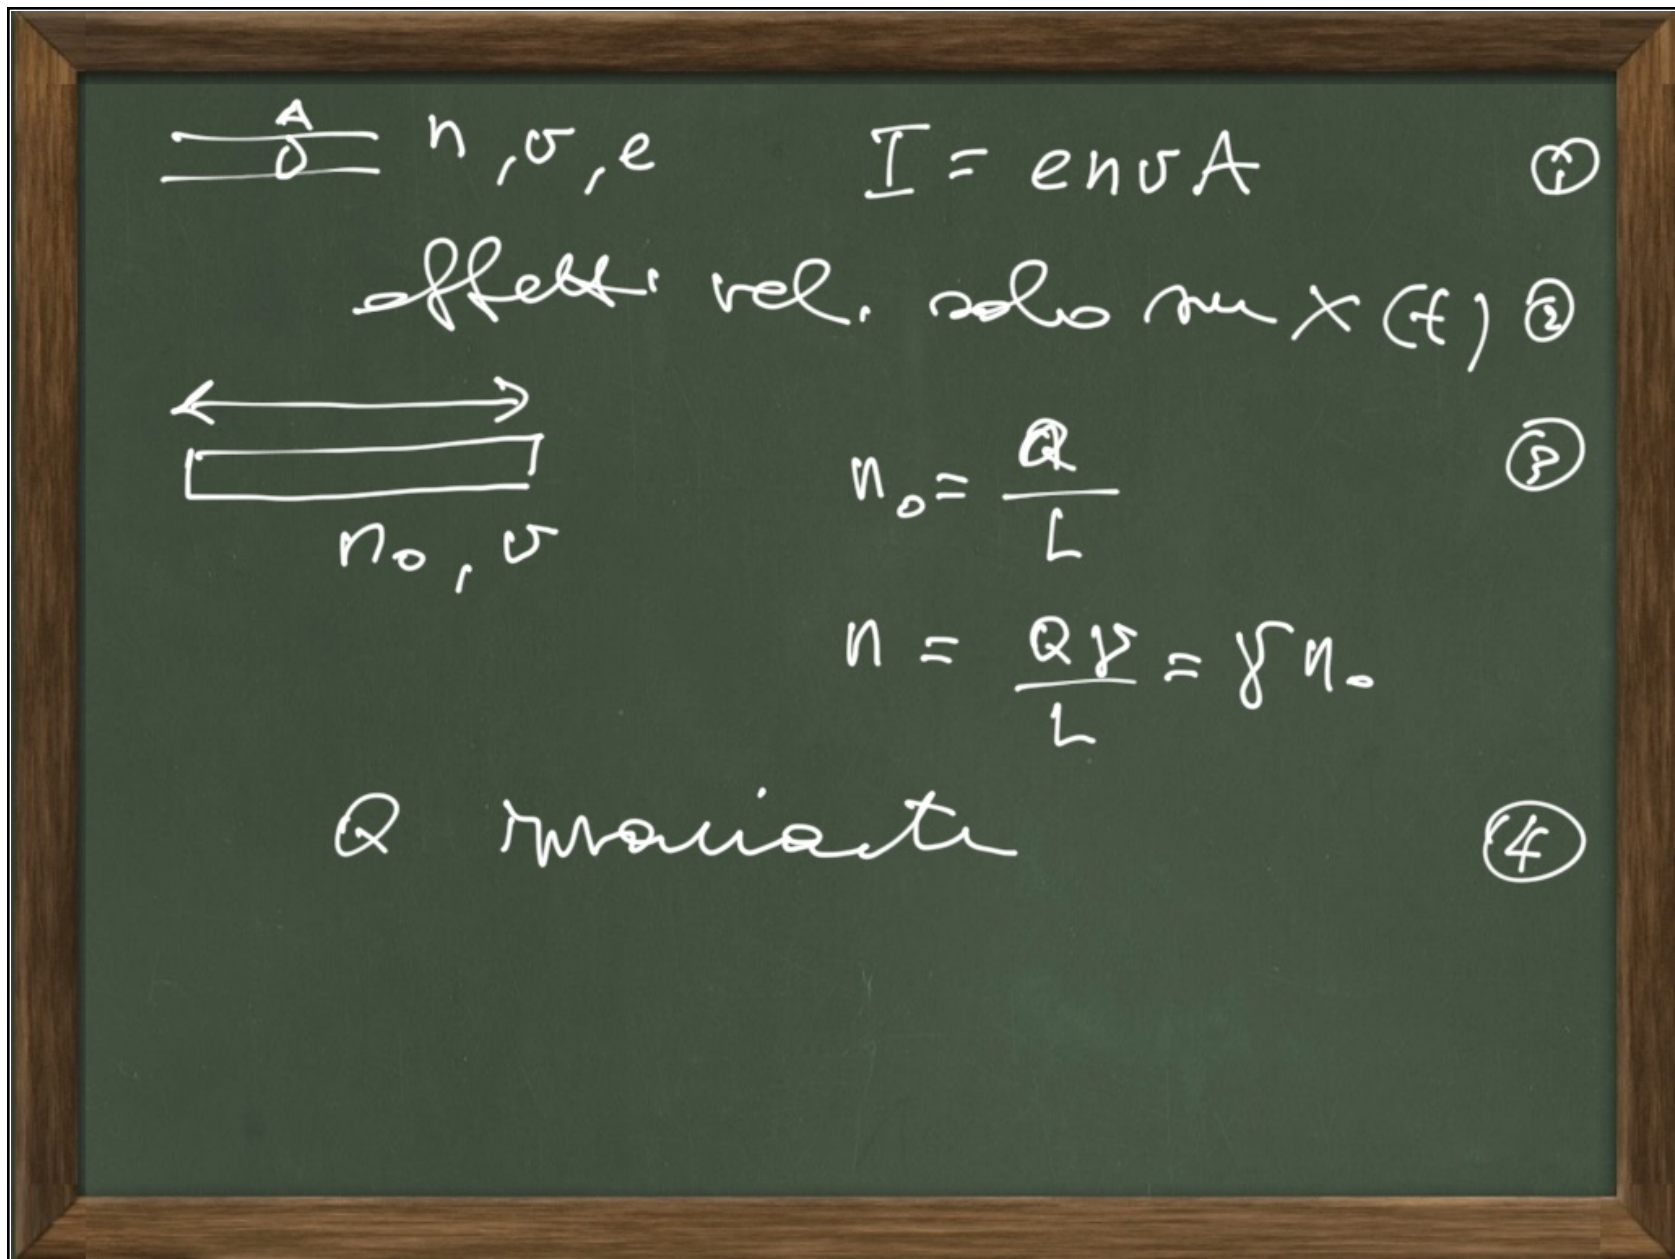 A n, v, e I = envA ①
effetti rel. solo su x (t) ②
n₀ = Q / L ③
n₀, v
n = Qγ / L = γ n₀
Q invariante ④